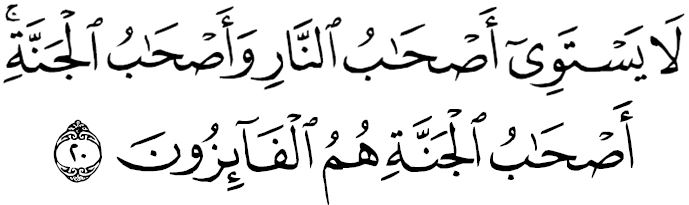 لَا يَسْتَوِىٓ أَصْحَـٰبُ ٱلنَّارِ وَأَصْحَـٰبُ ٱلْجَنَّةِ ۚ
أَصْحَـٰبُ ٱلْجَنَّةِ هُمُ ٱلْفَآئِزُونَ ۝٢٠